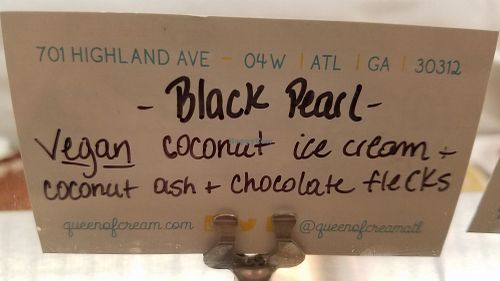 701 HIGHLAND AVE - 04W | ATL | GA | 30312
- Black Pearl -
Vegan coconut ice cream +
coconut ash + chocolate flecks
queenofcream.com @queenofcreamatl